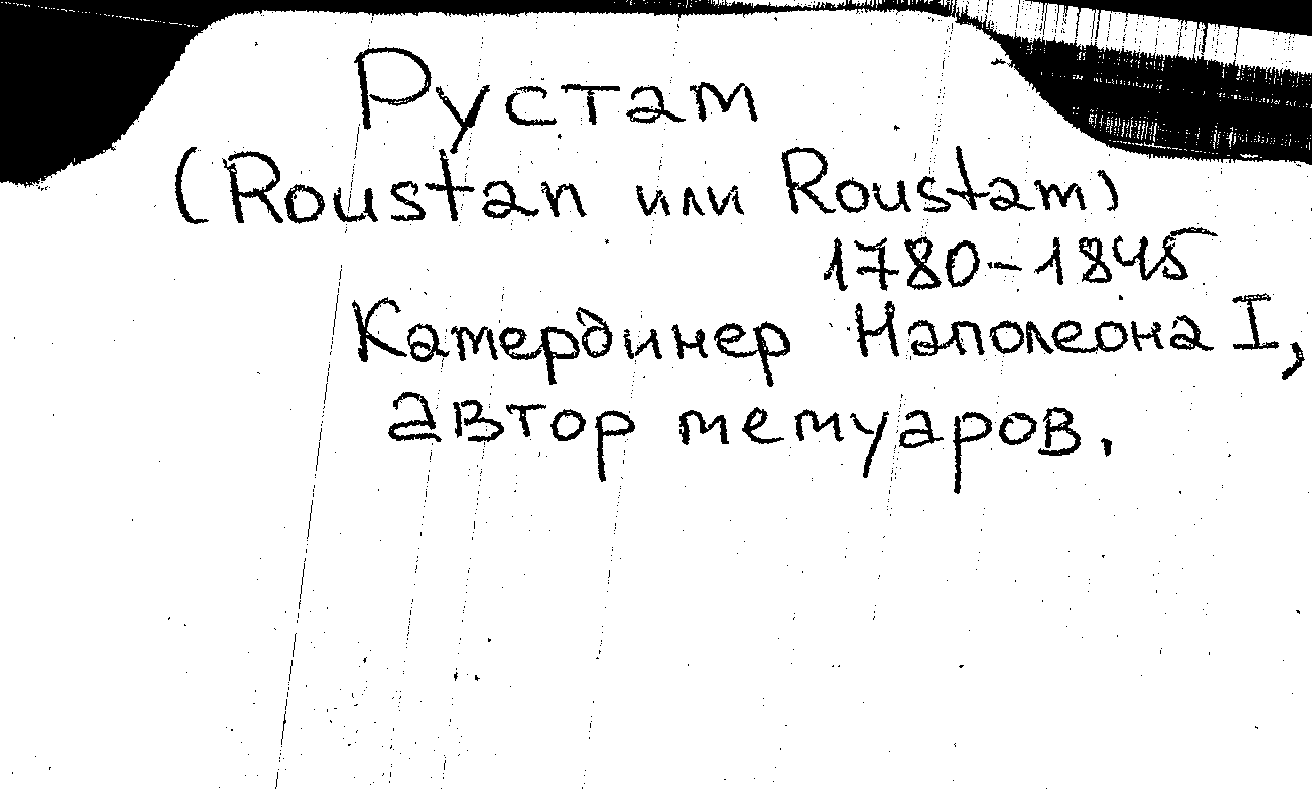 Рустам
(Roustan или Roustam)
1780-1845
Катердинер Наполеона I,
автор мемуаров.